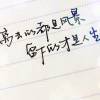 离去的都是风景
留下的才是人生